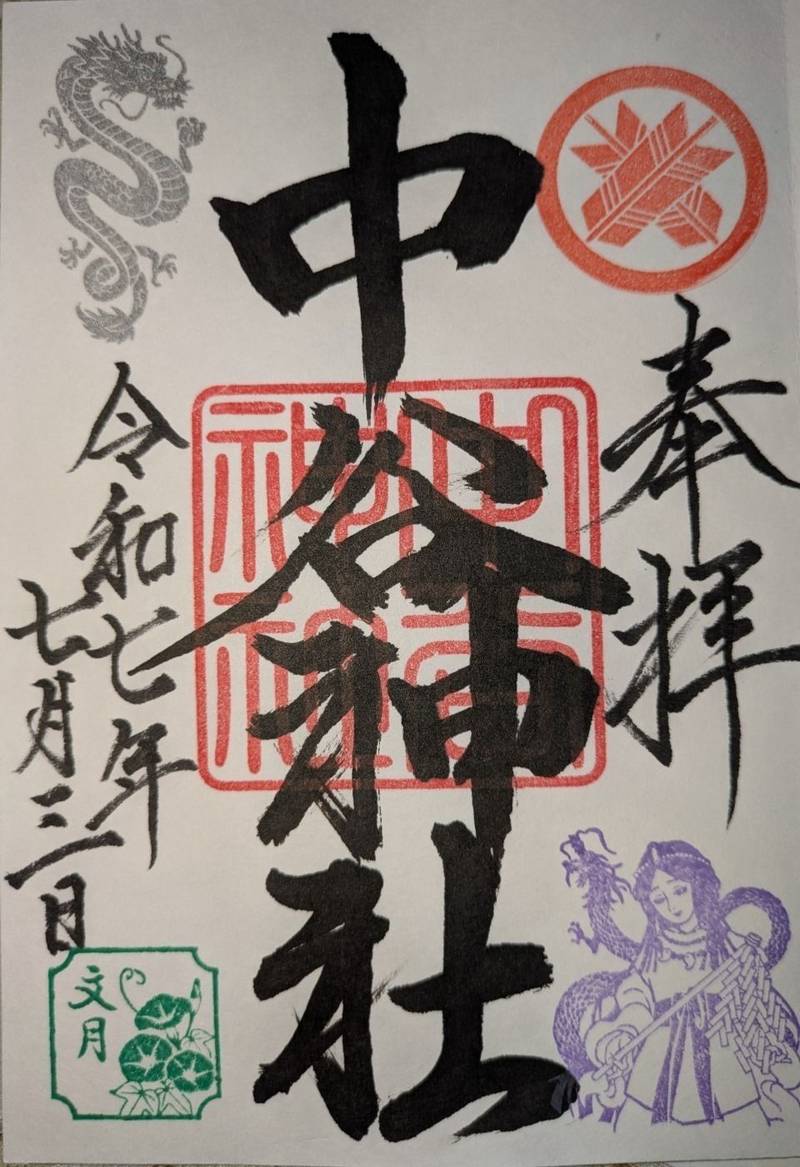 奉拝
中谷神社
中谷神社
令和七年
七月三日
文月